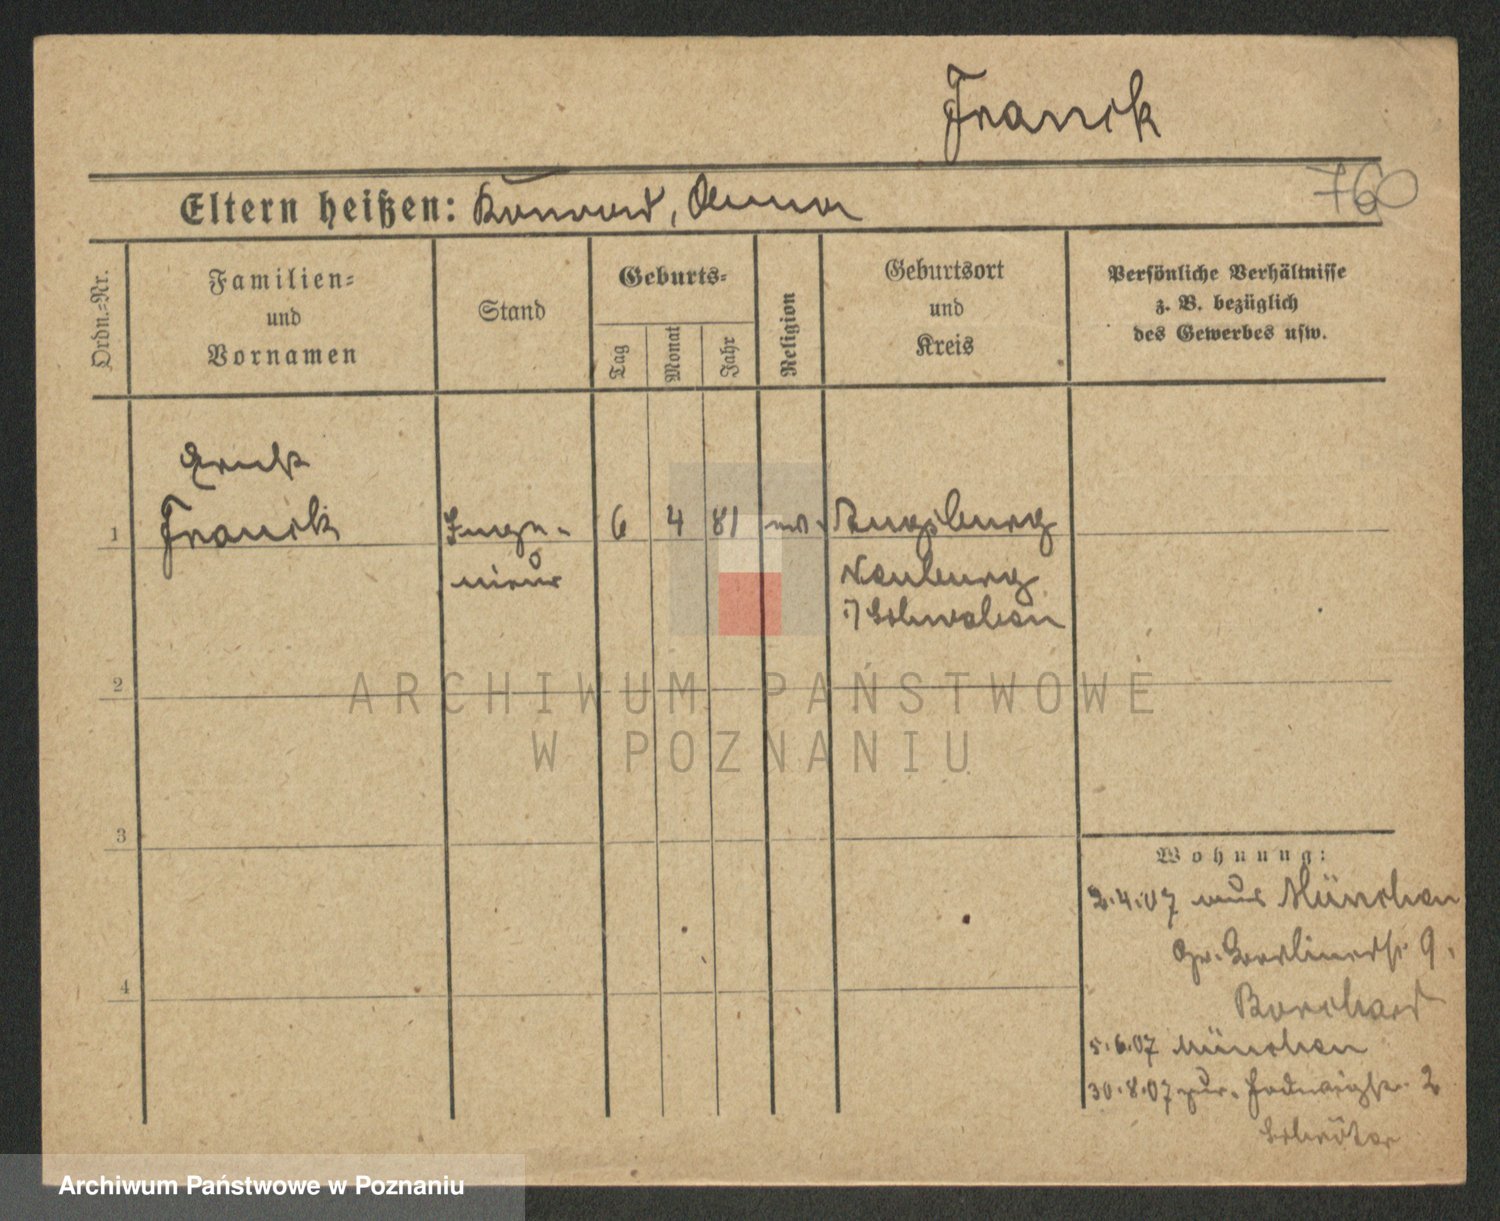 Franck
760
Eltern heißen: Konrad, Anna
Ordn.=Nr.
Familien=
und
Vornamen
Stand
Geburts=
Tag
Monat
Jahr
Religion
Geburtsort
und
Kreis
Persönliche Verhältnisse
z. B. bezüglich
des Gewerbes usw.
Ernst
1 Franck Inge- 6 4 81 Augsburg
nieur
Neuburg
i/Schwaben
2
ARCHIWUM PAŃSTWOWE
W POZNANIU
3
Wohnung:
2.4.07 aus München
Gr. Berlinerstr. 9.
Borchard
4
5.6.07 München
30.8.07 zur. Hedwigstr. 2
Schröter
Archiwum Państwowe w Poznaniu